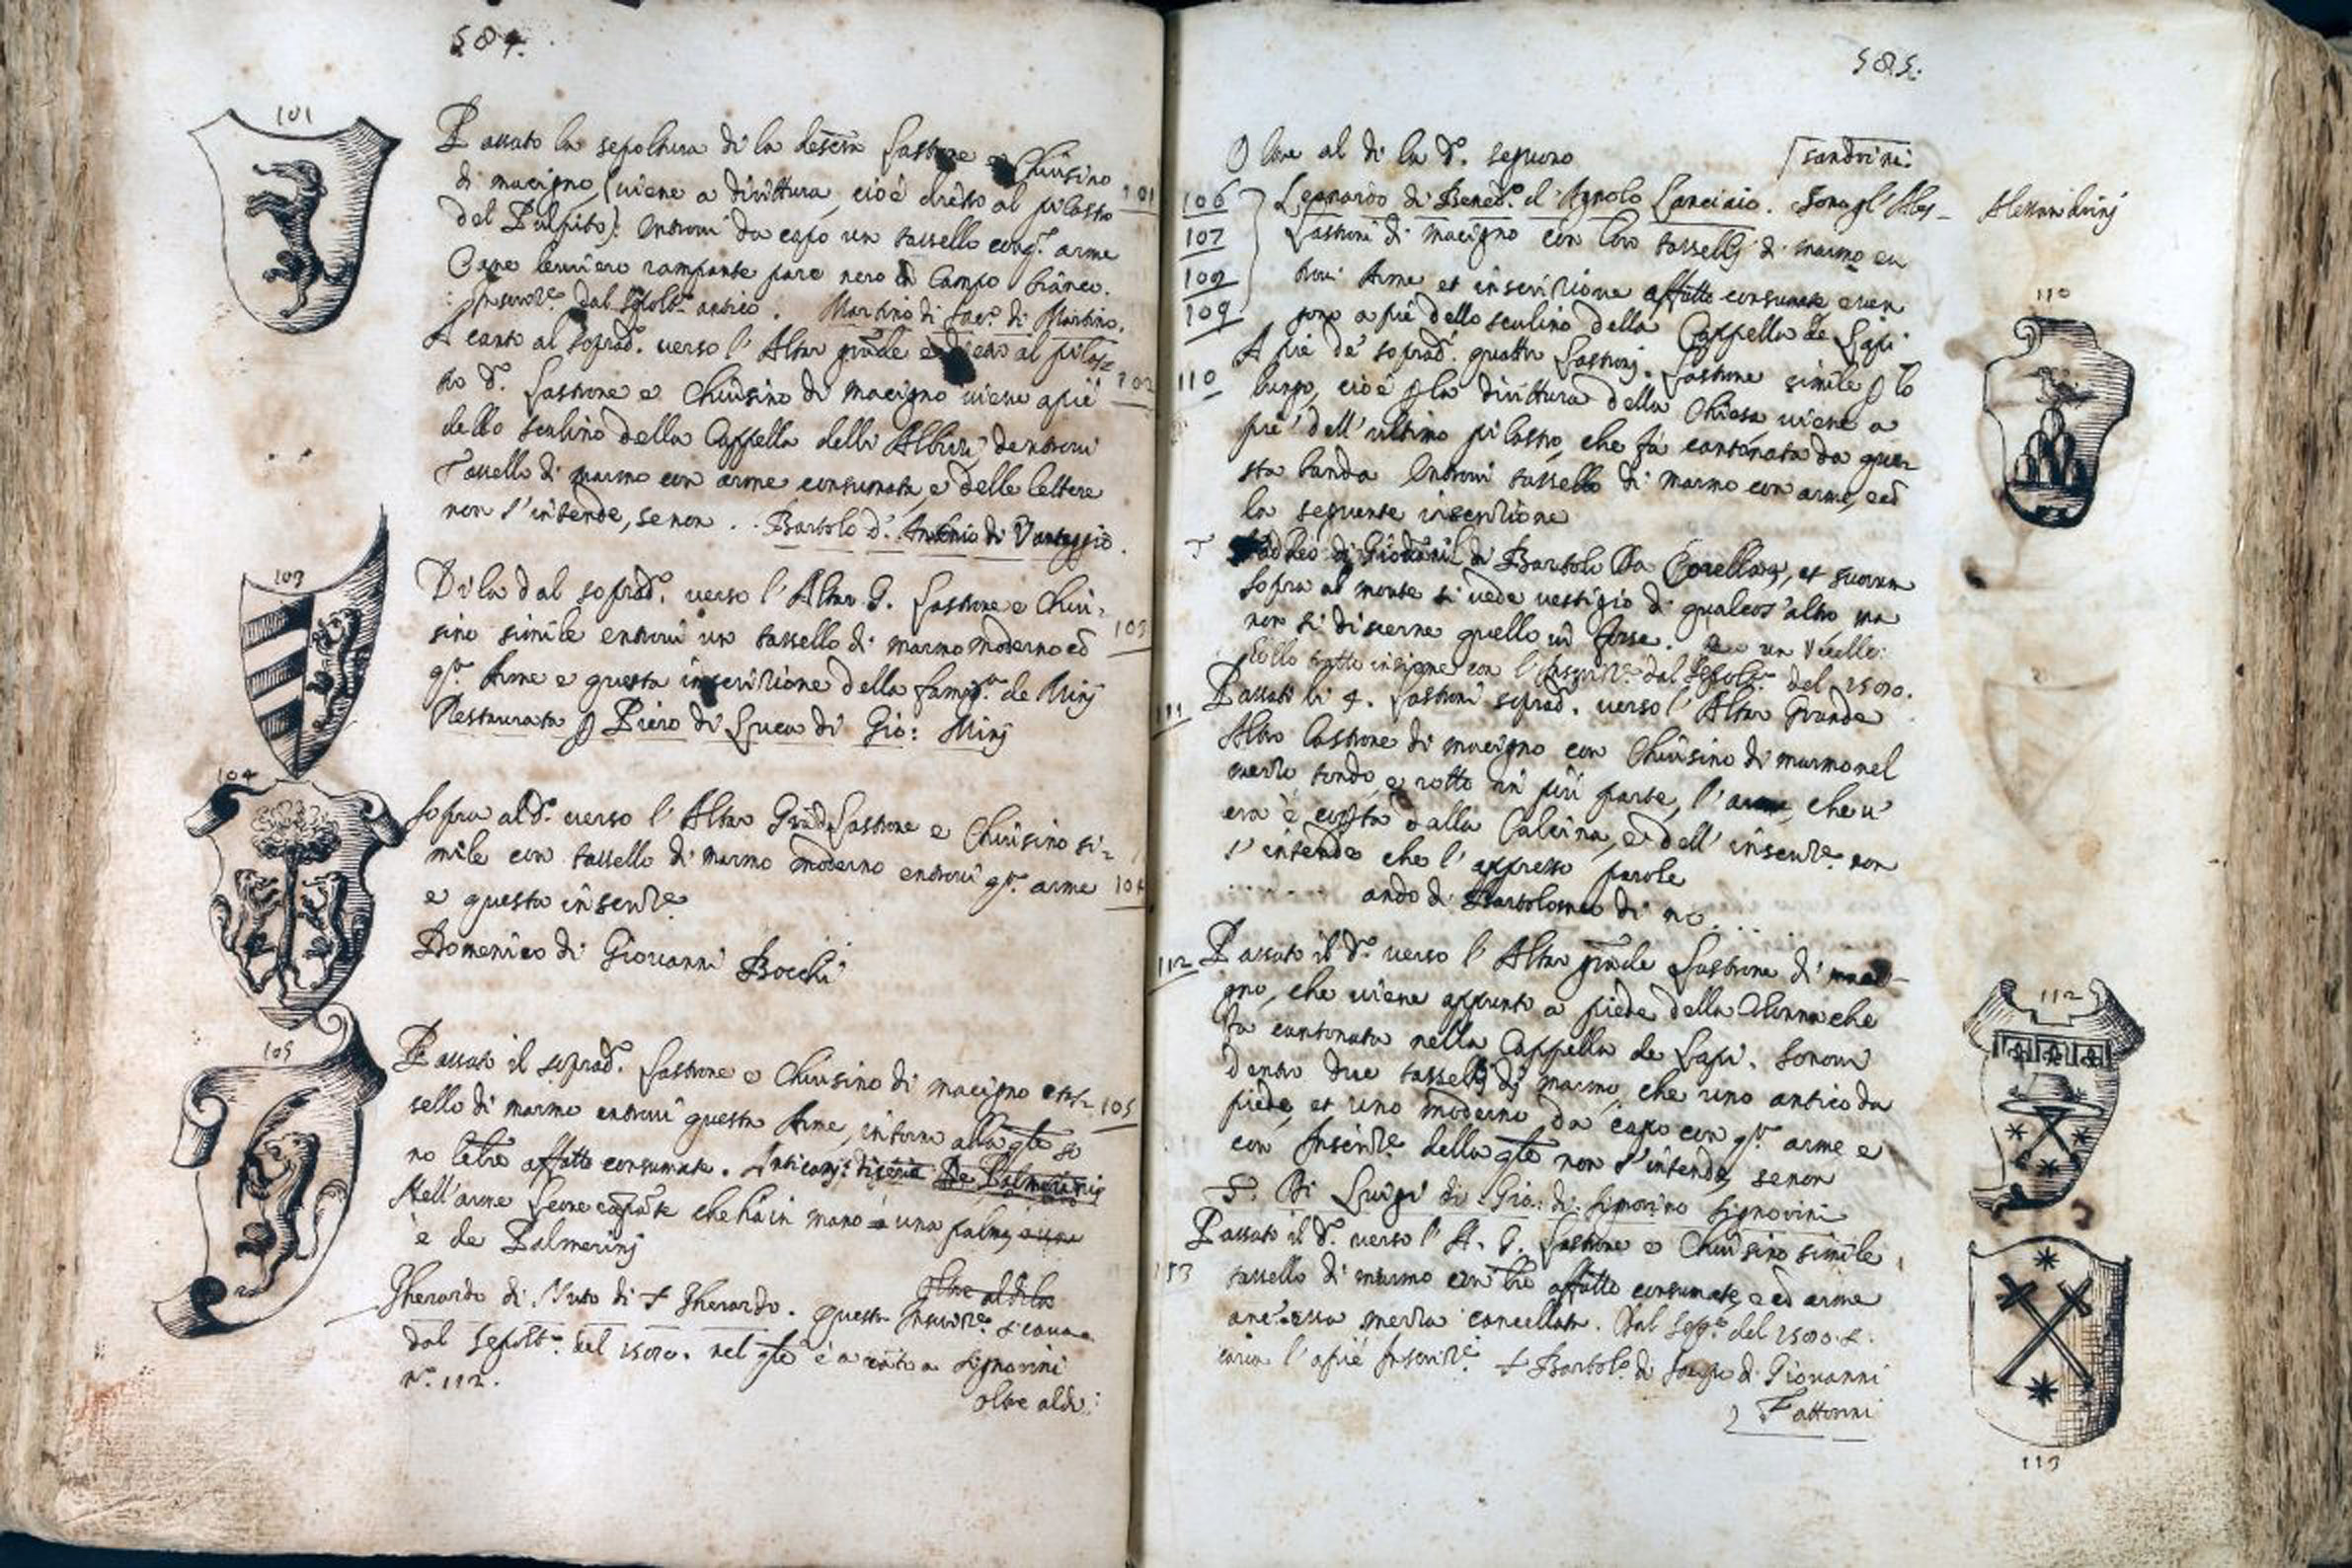 584.
101
Passato la sepoltura di la descra lastrone e Chiusino
di macigno (viene a dirittura, cioè dreto al pilastro
101
del Pulpito). Entrovi da capo un tassello con qta. arme
Cane levriero rampante pare nero in Campo bianco.
Inscrize. dal Sepolta. antico. Martino di Iaco. di Martino.
A canto al soprado. verso l'Altar grãde e dreto al pilas-
102
tro do. lastrone e Chiusino di macigno viene a piè
dello scalino della Cappella delli Albizi, dentrovi
Tassello di marmo con arme consumata, e delle lettere
non s'intende, se non . . Bartolo d'Antonio di Vantaggio.
103
Di la dal soprado. verso l'Altar G. lastrone e Chiu-
103
sino simile entrovi un tassello di marmo moderno cõ
qta. Arme e questa inscrizione della famiga. de Minj
Restaurata p Piero di Luca di Gio: Minj
104
Sopra al do. verso l'Altar Grãd. lastrone e Chiusino si-
mile con tassello di marmo moderno entrovi qta. arme
104
e questa inscrize.
Domenico di Giovanni Bocchi
105
Passato il soprado. lastrone e Chiusino di macigno e tas-
105
sello di marmo entrovi questa Arme, intorno alla qle so
no lettre affatto consumate. De Palmerinis
Nell'arme Leone rapãte che ha in mano una palma
è de Palmerinj
oltre al di la
Gherardo di Nuto di S Gherardo. questa Inscrize. si cava
dal Sepolta. del 1500. nel qle è a Signorini
No. 112.
oltre al di:
585.
Oltre al di la do. seguono
sandrini
106
Leonardo di Bened. d'Agnolo Lanciaio. Sono gl'Ales-
Alessandrinj
107
Lastroni di macigno con loro tasselli di marmo en
108
trovi Arme et inscrizione affatto consumate e ven
109
gono a piè dello scalino della Cappella de Lapi
110
A piè de' soprad. quattro lastronj. Lastrone simile p lo
110
lungo, cioè p la dirittura della Chiesa viene a
piè dell'ultimo pilastro, che fà cantonata da que-
sta banda. Entrovi tassello di marmo con arme, cõ
la seguente inscrizione
S Taddeo di Giovanni di Bartolo Da Corella, et suorum
Sopra al monte si vede vestigio di qualcos'altro ma
non si discerne quello vi fosse. un Vccello:
tutto insieme con l'Inscrize. dal Sepolta. del 1500.
111
Passati li 4. lastroni soprad. verso l'Altar Grande
Altro lastrone di macigno con Chiusino di marmo nel
mezzo tondo, e rotto in più parte, l'arme, che v'
era è coperta dalla Calcina, e dell'inscrize. non
s'intende che l'appresso parole
. . . . . . . ando di Bartolomeo di no . . . .
112
Passato il do. verso l'Altar grãde lastrone di maci-
gno, che viene appunto a piede della Colonna che
112
fa cantonata nella Cappella de Lapi. Sonovi
dentro due tasselli di marmo, che uno antico da
piede, et uno moderno da capo con qta. arme e
con Inscrize. della qle non s'intende, se non
S. Di Luigi di Gio: di Signorino Signorini
113
Passato il do. verso l'A. G. lastrone e Chiusino simile
tassello di marmo con lre affatto consumate, e cõ arme
mezza cancellata. Dal Sepo. del 1500. si
cava l'a piè Inscrize. S Bartolo. di di Giovanni
Fattorini
113